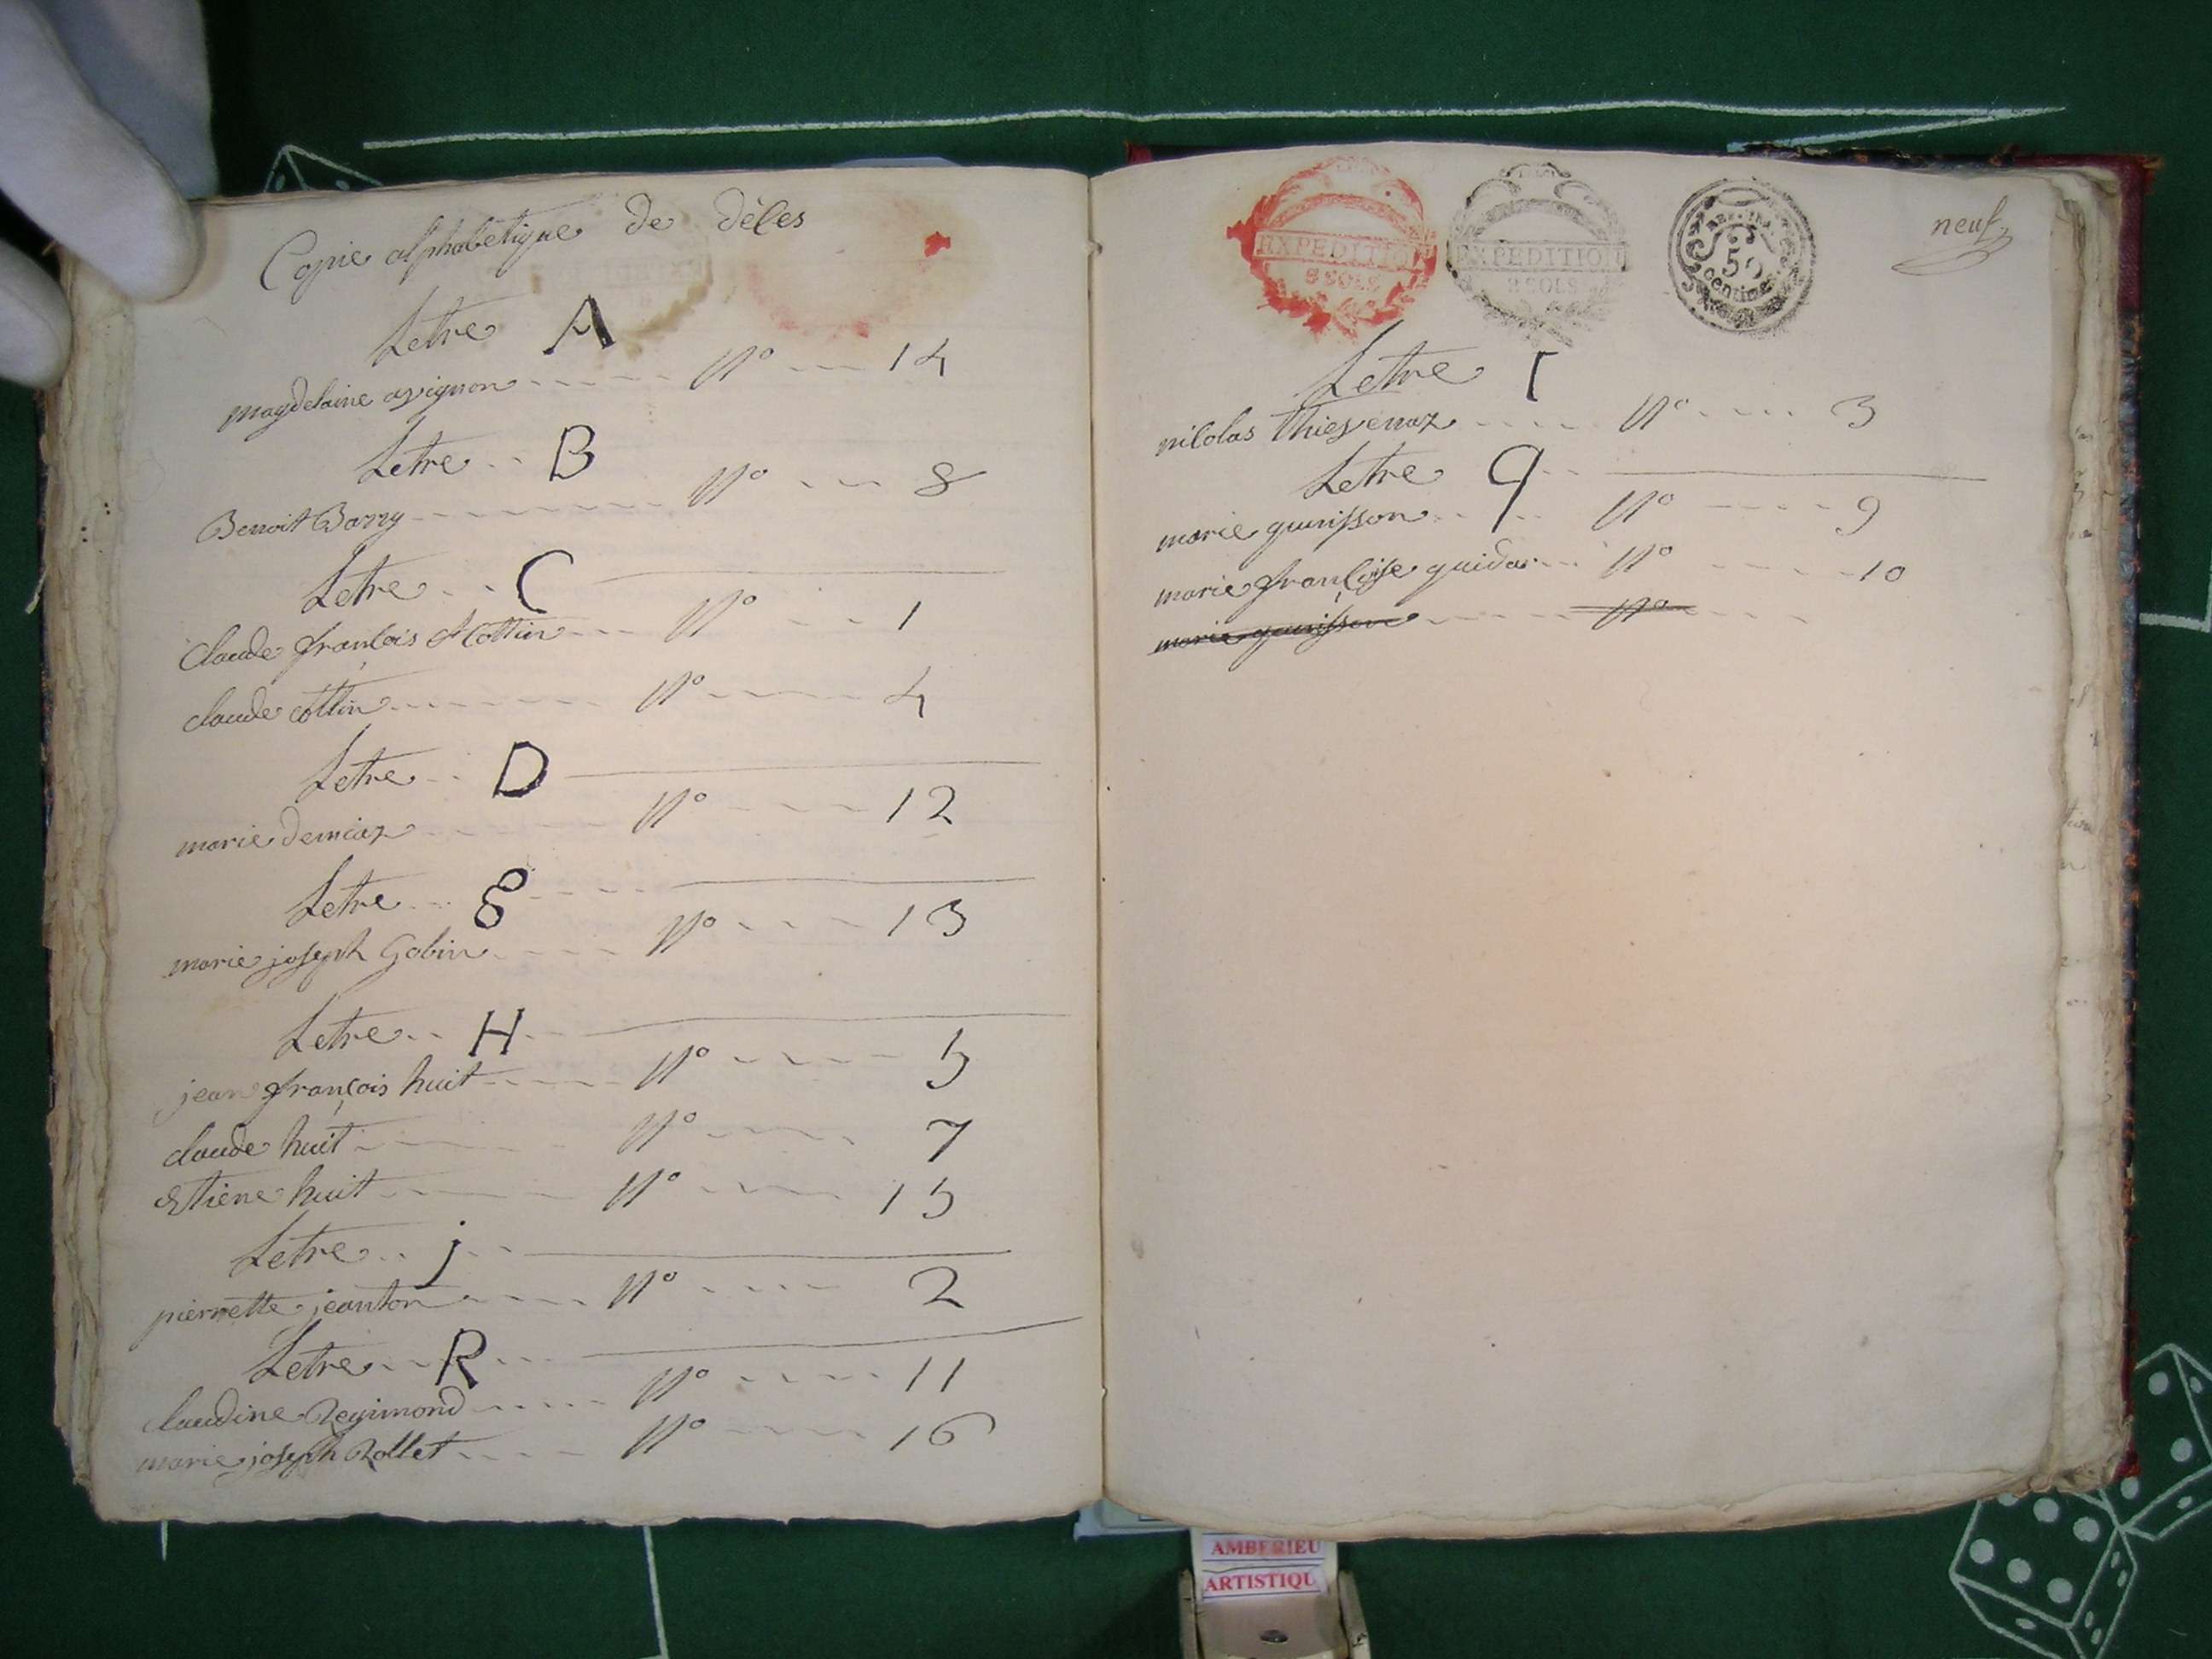 Copie alphabetique de dèces
Letre A
magdelaine avignon N° 14
Letre B
Benoit Barry N° 8
Letre C
Claude francois Cottin N° 1
claude Cottin N° 4
Letre D
marie demiaz N° 12
Letre g
marie joseph Gobin N° 13
Letre H
jean françois huit N° 5
claude huit N° 7
Etiene huit N° 15
Letre j
pierrette jeanton N° 2
Letre R
claudine Reyimond N° 11
marie joseph Rollet N° 16
EXPEDITION
8 SOLS
EXPEDITION
8 SOLS
50
centimes
neuf
Letre T
nicolas Thievenaz N° 3
Letre q
marie qunisson N° 9
marie françoise quidor N° 10
marie qunisson N°
AMBERIEU
ARTISTIQU